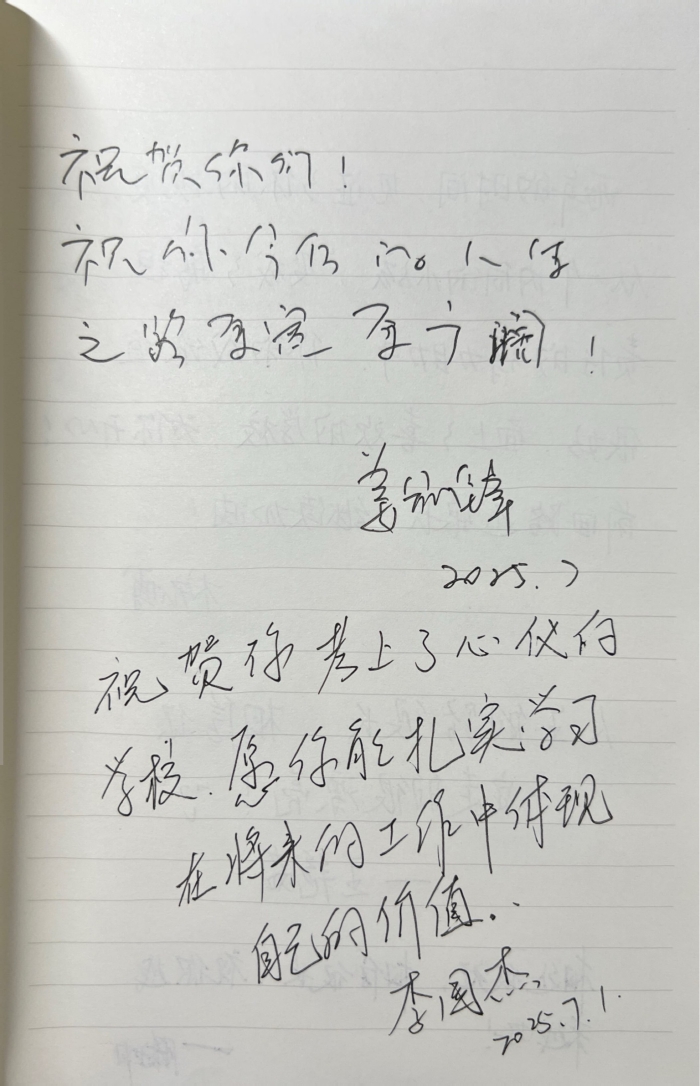 祝贺你们!
祝你今后的人生
之路更宽更广阔!
2025.7
祝贺你考上了心仪的
学校.愿你能扎实学习
在将来的工作中体现
自己的价值..
李国杰
2025.7.1.